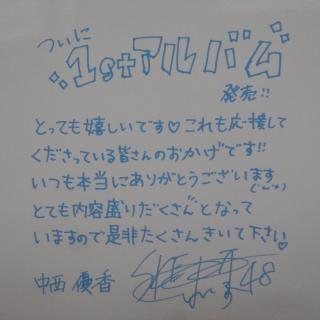 ついに
1stアルバム
発売!!
とっても嬉しいです♡これも応援して
くださっている皆さんのおかげです!!
いつも本当にありがとうございます
とても内容盛りだくさんとなって
いますので是非たくさんきいて下さい♡
中西 優香
48